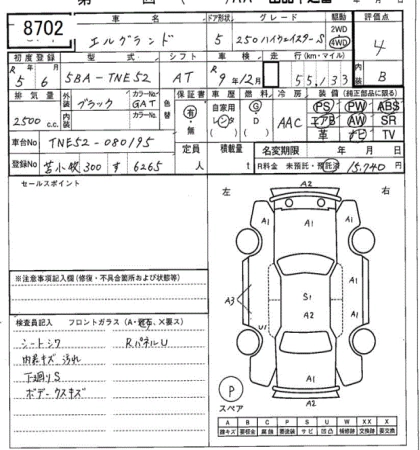 8702
車名 ドア形状 グレード 駆動 評価点
エルグランド 5 250ハイウェイスターS 2WD 4WD 4
初度登録 型式 シフト 車検 走行(km・マイル) 内装
R5 6 5BA-TNE52 AT R9年12月 55,133 B
排気量 外装 カラーNo. 色替 保証書 車歴 燃料 冷房 装備(純正部品に限る)
2500 c.c. ブラック GAT 有・無 自家用 レンタ G・D AAC PS PW ABS
内装 カラーNo. エアB AW SR
革 ナビ TV
車台No TNE52-080195 定員 積載量 名変期限 年 月 日
登録No 苫小牧 300 す 6265 人 t R料金 未預託・預託済 15,740 円
セールスポイント
左 右
A2
A1 A1
A1
※注意事項記入欄(修復・不具合箇所および状態等)
A3 S1
A2
検査員記入 フロントガラス(A・飛石、X要ス)
シートシワ RパネルU U1 A1
内装キズ 汚れ
下廻りS A1
ボデークスキズ
P A2
スペア
A B C P S U W X XX
線キズ 要板金 腐蝕 要塗装 サビ 凹凸 補修跡 交換跡 要交換